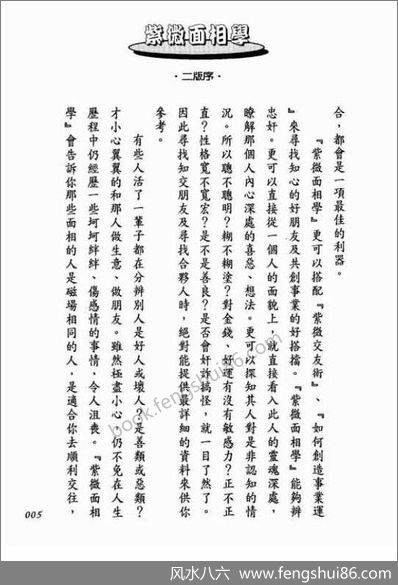 紫微面相學
·二版序·
合，都會是一項最佳的利器。
『紫微面相學』更可以搭配『紫微交友術』、『如何創造事業運
』來尋找知心的好朋友及共創事業的好搭擋。『紫微面相學』能夠辨
忠奸。更可以直接從一個人的面貌上，就直接看入此人的靈魂深處，
瞭解那個人內心深處的喜惡、想法。更可以探知其人對是非認知的情
況。所以聰不聰明？糊不糊塗？對金錢、好運有沒有敏感力？正不正
直？性格寬不寬宏？是不是善良？是否會奸詐搞怪，就一目了然了。
因此尋找知交朋友及尋找合夥人時，絕對能提供最詳細的資料來供你
參考。
有些人活了一輩子都在分辨別人是好人或壞人？是善類或惡類？
才小心翼翼的和那人做生意、做朋友。雖然極盡小心，仍不免在人生
歷程中仍經歷一些坷坷絆絆、傷感情的事情，令人沮喪。『紫微面相
學』會告訴你那些面相的人是磁場相同的人，是適合你去順利交往，
005
book.fengshui86.com
风水八六 www.fengshui86.com